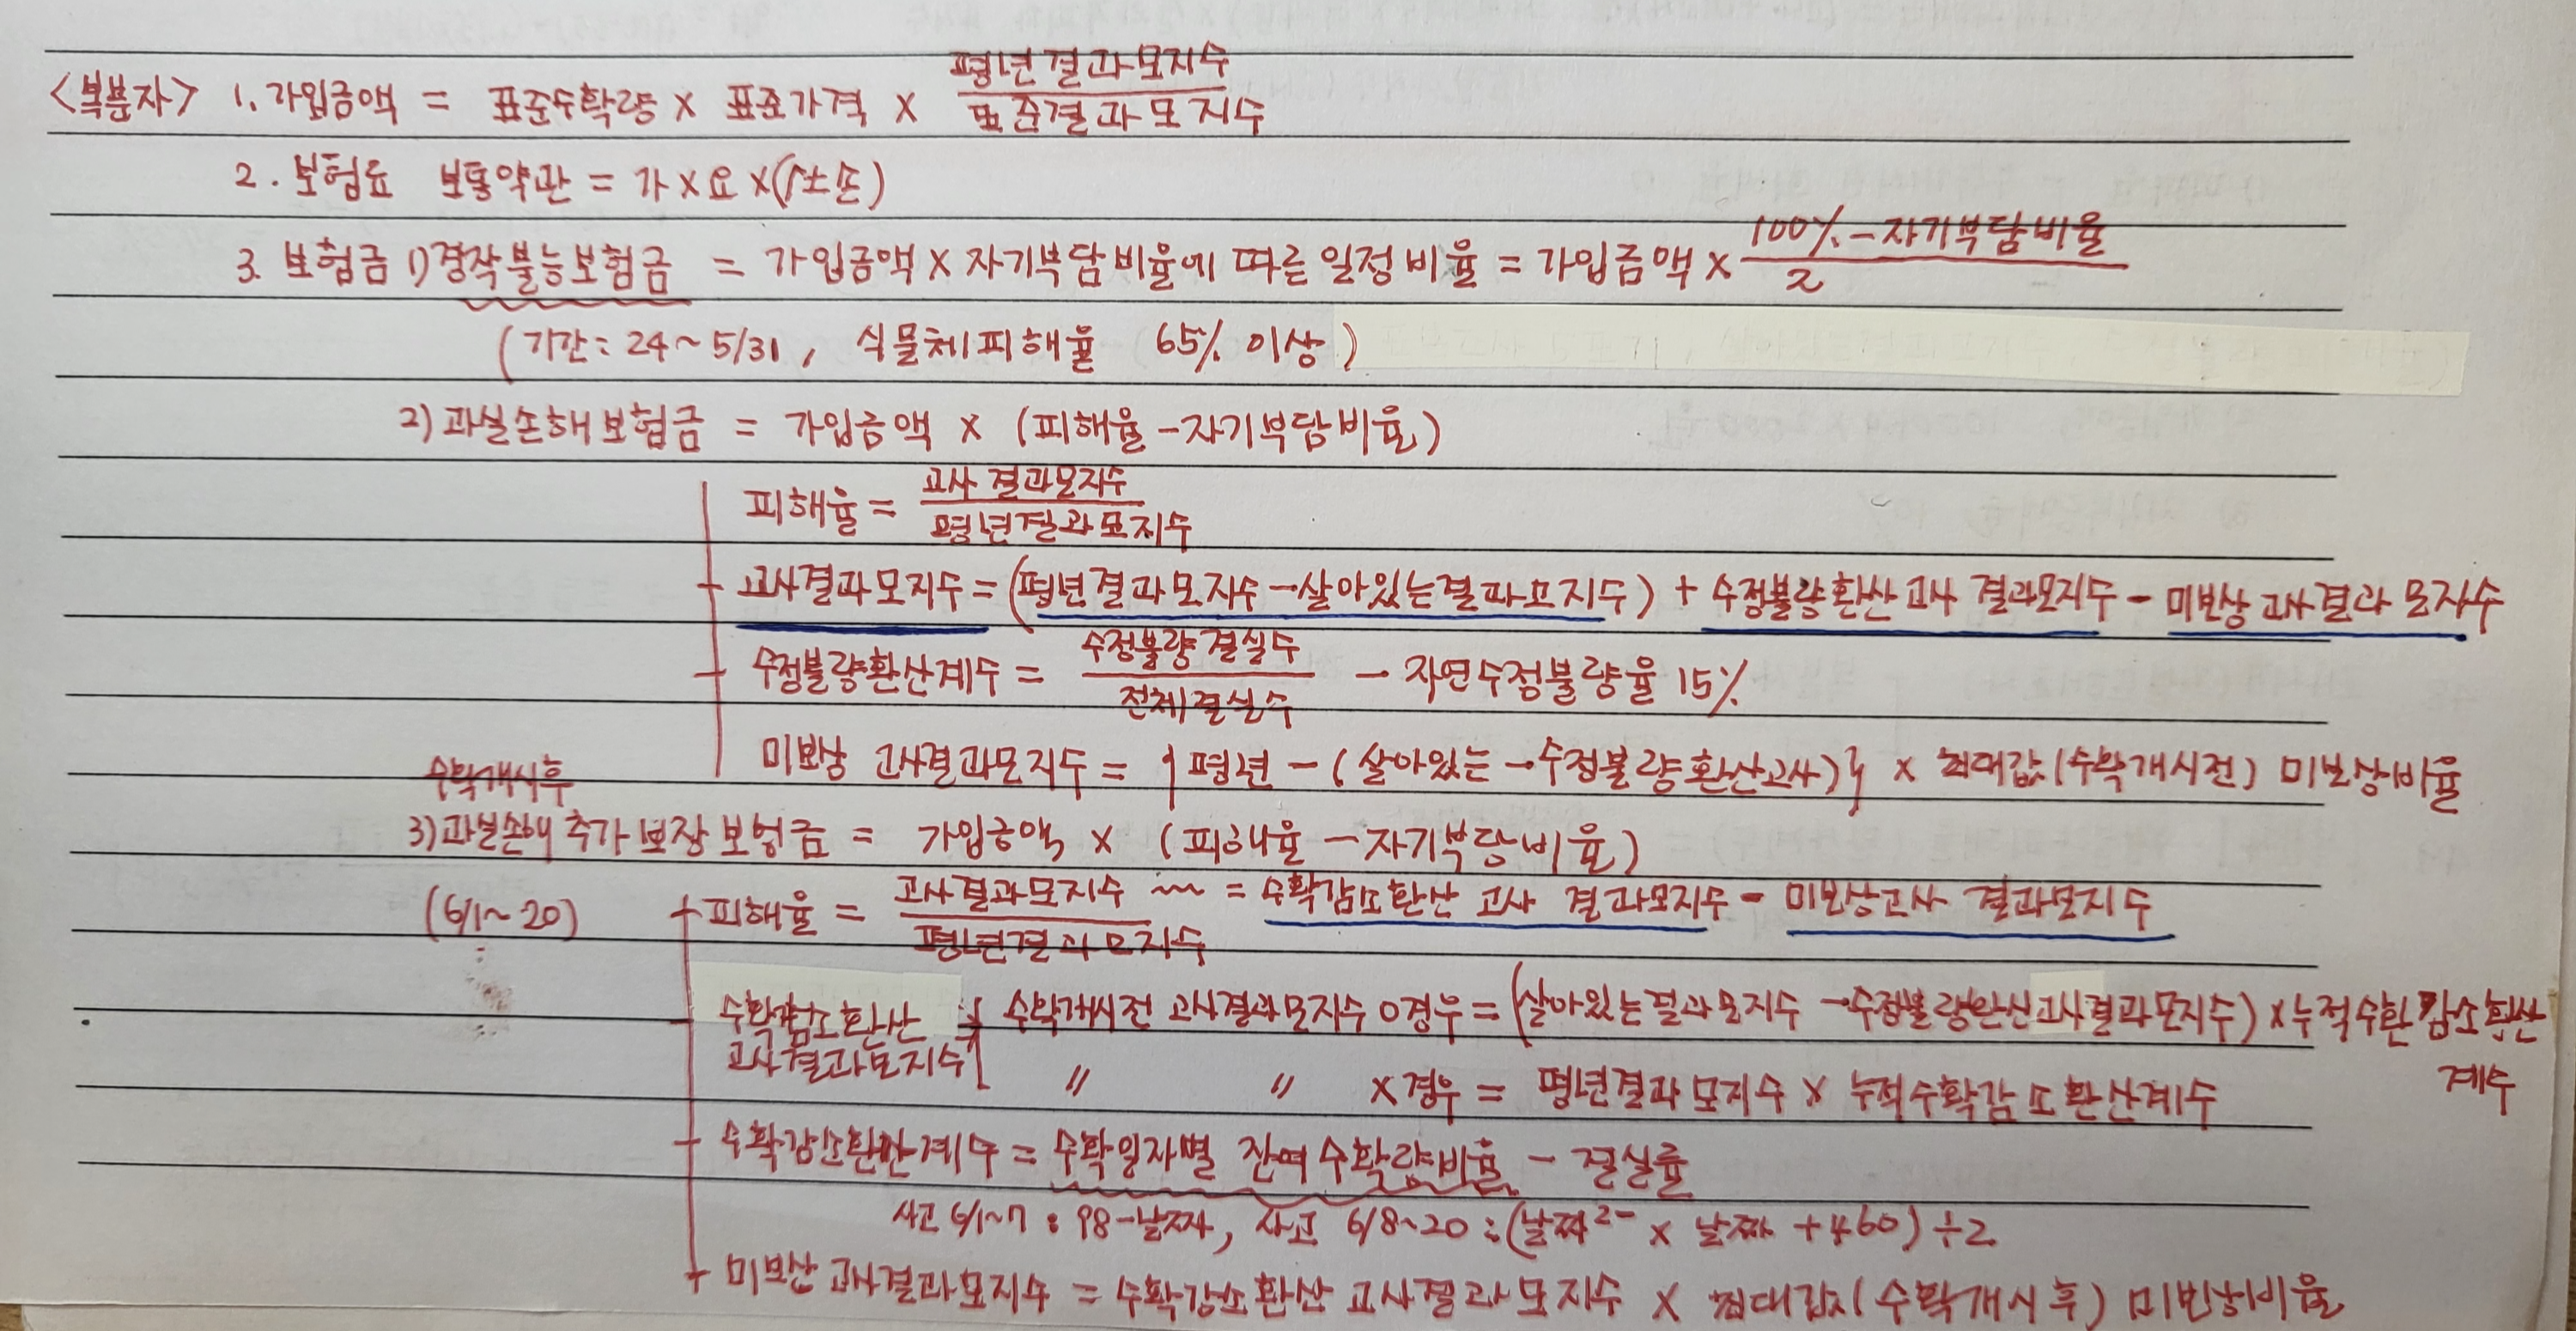 <복분자> 1. 가입금액 = 표준수확량 × 표준가격 × 평년결과모지수 / 표준결과모지수
2. 보험료 보통약관 = 가 × 요 × (1±손)
3. 보험금 1) 경작불능보험금 = 가입금액 × 자기부담비율에 따른 일정비율 = 가입금액 × 100%-자기부담비율 / 2
(기간: 24~5/31, 식물체피해율 65% 이상)
2) 과실손해보험금 = 가입금액 × (피해율-자기부담비율)
피해율 = 고사결과모지수 / 평년결과모지수
고사결과모지수 = (평년결과모지수-살아있는결과모지수) + 수정불량환산고사 결과모지수 - 미보상고사결과모지수
수정불량환산계수 = 수정불량결실수 / 전체결실수 - 자연수정불량율 15%
미보상 고사결과모지수 = {평년 - (살아있는 - 수정불량환산고사)} × 최대값(수확개시전) 미보상비율
수확개시후
3) 과실손해 추가보장보험금 = 가입금액 × (피해율-자기부담비율)
(6/1~20) 피해율 = 고사결과모지수 / 평년결과모지수 ~ = 수확감소환산 고사 결과모지수 - 미보상고사 결과모지수
수확감소환산 고사결과모지수 수확개시전 고사결과모지수 0경우 = (살아있는결과모지수 - 수정불량환산고사결과모지수) × 누적수확감소환산계수
〃 〃 ×경우 = 평년결과모지수 × 누적수확감소환산계수
수확감소환산계수 = 수확일자별 잔여수확량비율 - 결실률
사고 6/1~7 : 98-날짜, 사고 6/8~20 : (날짜²- × 날짜 + 460) ÷2
미보상 고사결과모지수 = 수확감소환산 고사결과모지수 × 최대값(수확개시후) 미보상비율